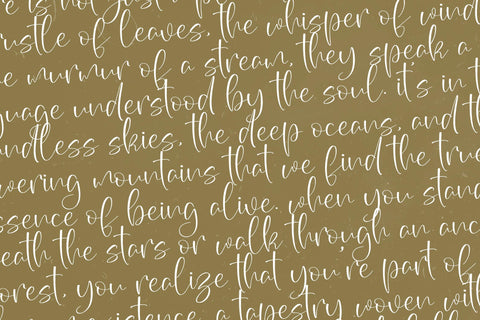 is not just a
rustle of leaves, the whisper of wind
murmur of a stream, they speak a
guage understood by the soul. it's in t
ndless skies, the deep oceans, and th
wering mountains that we find the true
ssence of being alive. when you stand
eath the stars or walk through an anc
orest, you realize that you're part of
existence, a tapestry woven with